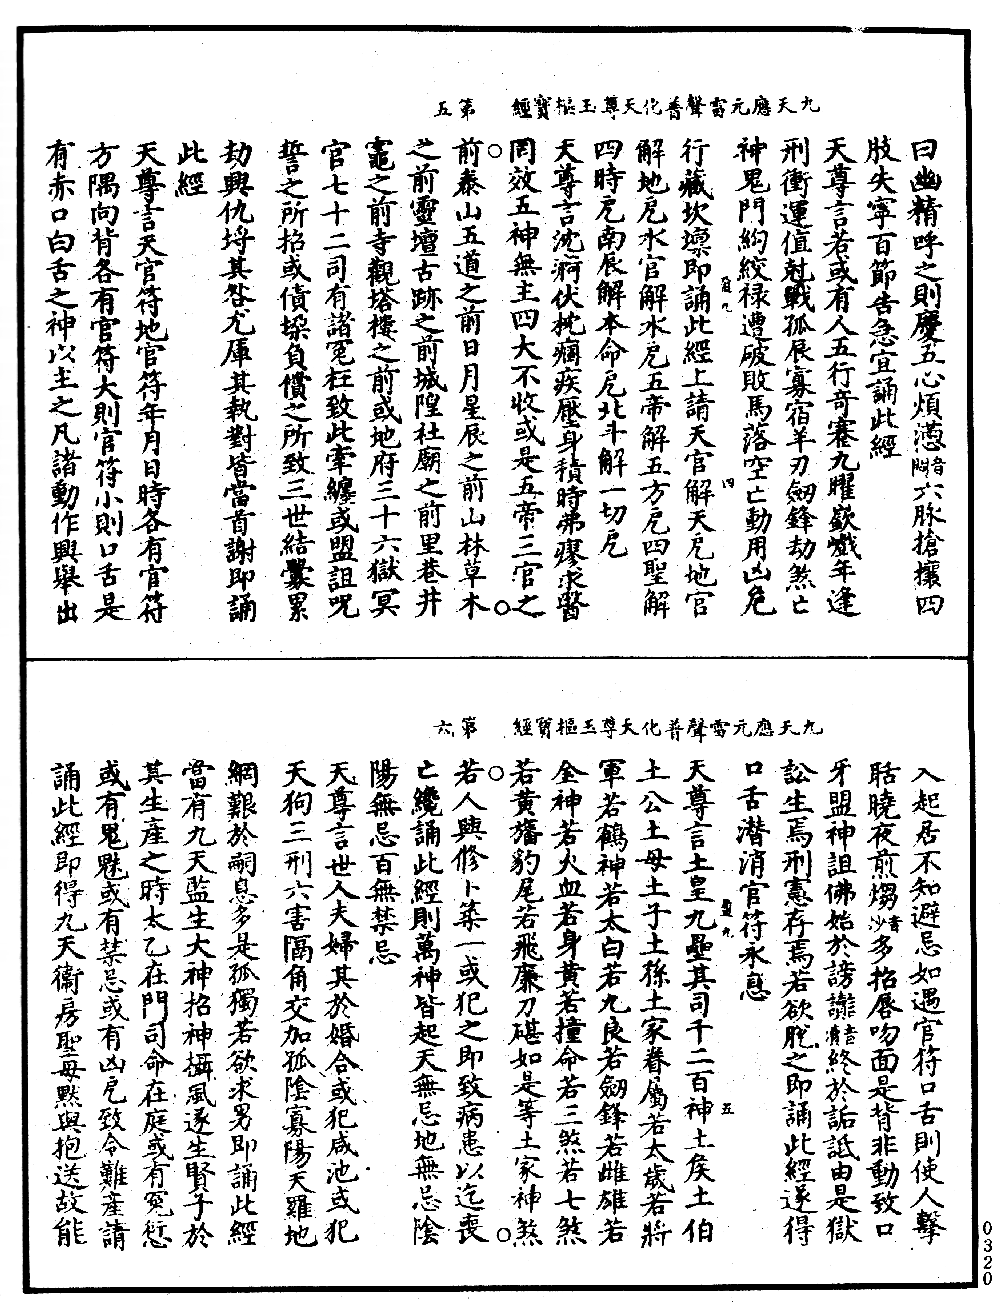 九天應元雷聲普化天尊玉樞寶經　第五
曰幽精呼之則慶五心煩懣音悶六脉搶攘四
肢失寧百節告急宜誦此經
天尊言若或有人五行奇蹇九曜嶔巇年逢
刑衝運值尅戰孤辰寡宿羊刃劒鋒劫煞亡
神鬼門鉤絞祿遭破敗馬落空亡動用凶危
行藏坎壈即誦此經上請天官解天厄地官
解地厄水官解水厄五帝解五方厄四聖解
四時厄南辰解本命厄北斗解一切厄
天尊言沈痾伏枕痼疾壓身積時弗瘳求醫
罔效五神無主四大不收或是五帝三官之
前泰山五道之前日月星辰之前山林草木
之前靈壇古跡之前城隍社廟之前里巷井
竈之前寺觀塔樓之前或地府三十六獄冥
官七十二司有諸冤枉致此牽纏或盟詛呪
誓之所招或債垜負償之所致三世結釁累
劫興仇埒其咎尤厙其執對皆當首謝即誦
此經
天尊言天官符地官符年月日時各有官符
方隅向背各有官符大則官符小則口舌是
有赤口白舌之神以主之凡諸動作興舉出
九天應元雷聲普化天尊玉樞寶經　第六
入起居不知避忌如遇官符口舌則使人擊
聒曉夜煎煼音沙多招唇吻面是背非動致口
牙盟神詛佛始於謗讟音瀆終於詬詆由是獄
訟生焉刑憲存焉若欲脫之即誦此經遂得
口舌潜消官符永息
天尊言土皇九壘其司千二百神土矦土伯
土公土母土子土孫土家眷屬若太歲若將
軍若鶴神若太白若九良若劒鋒若雌雄若
金神若火血若身黃若撞命若三煞若七煞
若黃旛豹尾若飛廉刀碪如是等土家神煞
若人興修卜築一或犯之即致病患以迄喪
亡纔誦此經則萬神皆起天無忌地無忌陰
陽無忌百無禁忌
天尊言世人夫婦其於婚合或犯咸池或犯
天狗三刑六害隔角交加孤陰寡陽天羅地
網艱於嗣息多是孤獨若欲求男即誦此經
當有九天監生大神招神攝風遂生賢子於
其生產之時太乙在門司命在庭或有冤愆
或有鬼魅或有禁忌或有凶厄致令難產請
誦此經即得九天衛房聖母默與抱送故能
0320